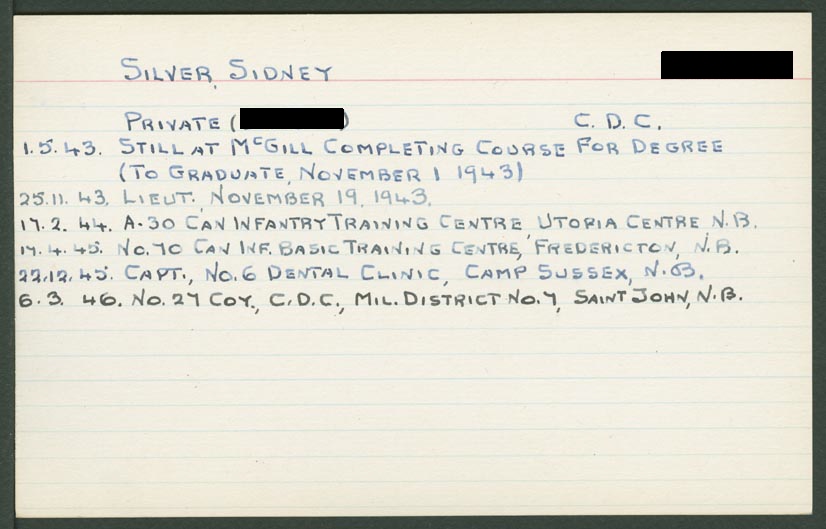 SILVER, SIDNEY
PRIVATE ( ) C. D. C.
1.5.43. STILL AT McGILL COMPLETING COURSE FOR DEGREE
(TO GRADUATE, NOVEMBER 1 1943)
25.11.43. LIEUT., NOVEMBER 19, 1943.
17.2.44. A-30 CAN INFANTRY TRAINING CENTRE, UTOPIA CENTRE N.B.
14.4.45. No.70 CAN INF. BASIC TRAINING CENTRE, FREDERICTON, N.B.
22.12.45. CAPT., No.6 DENTAL CLINIC, CAMP SUSSEX, N.B.
6.3.46. No.27 COY., C.D.C., MIL. DISTRICT No.7, SAINT JOHN, N.B.